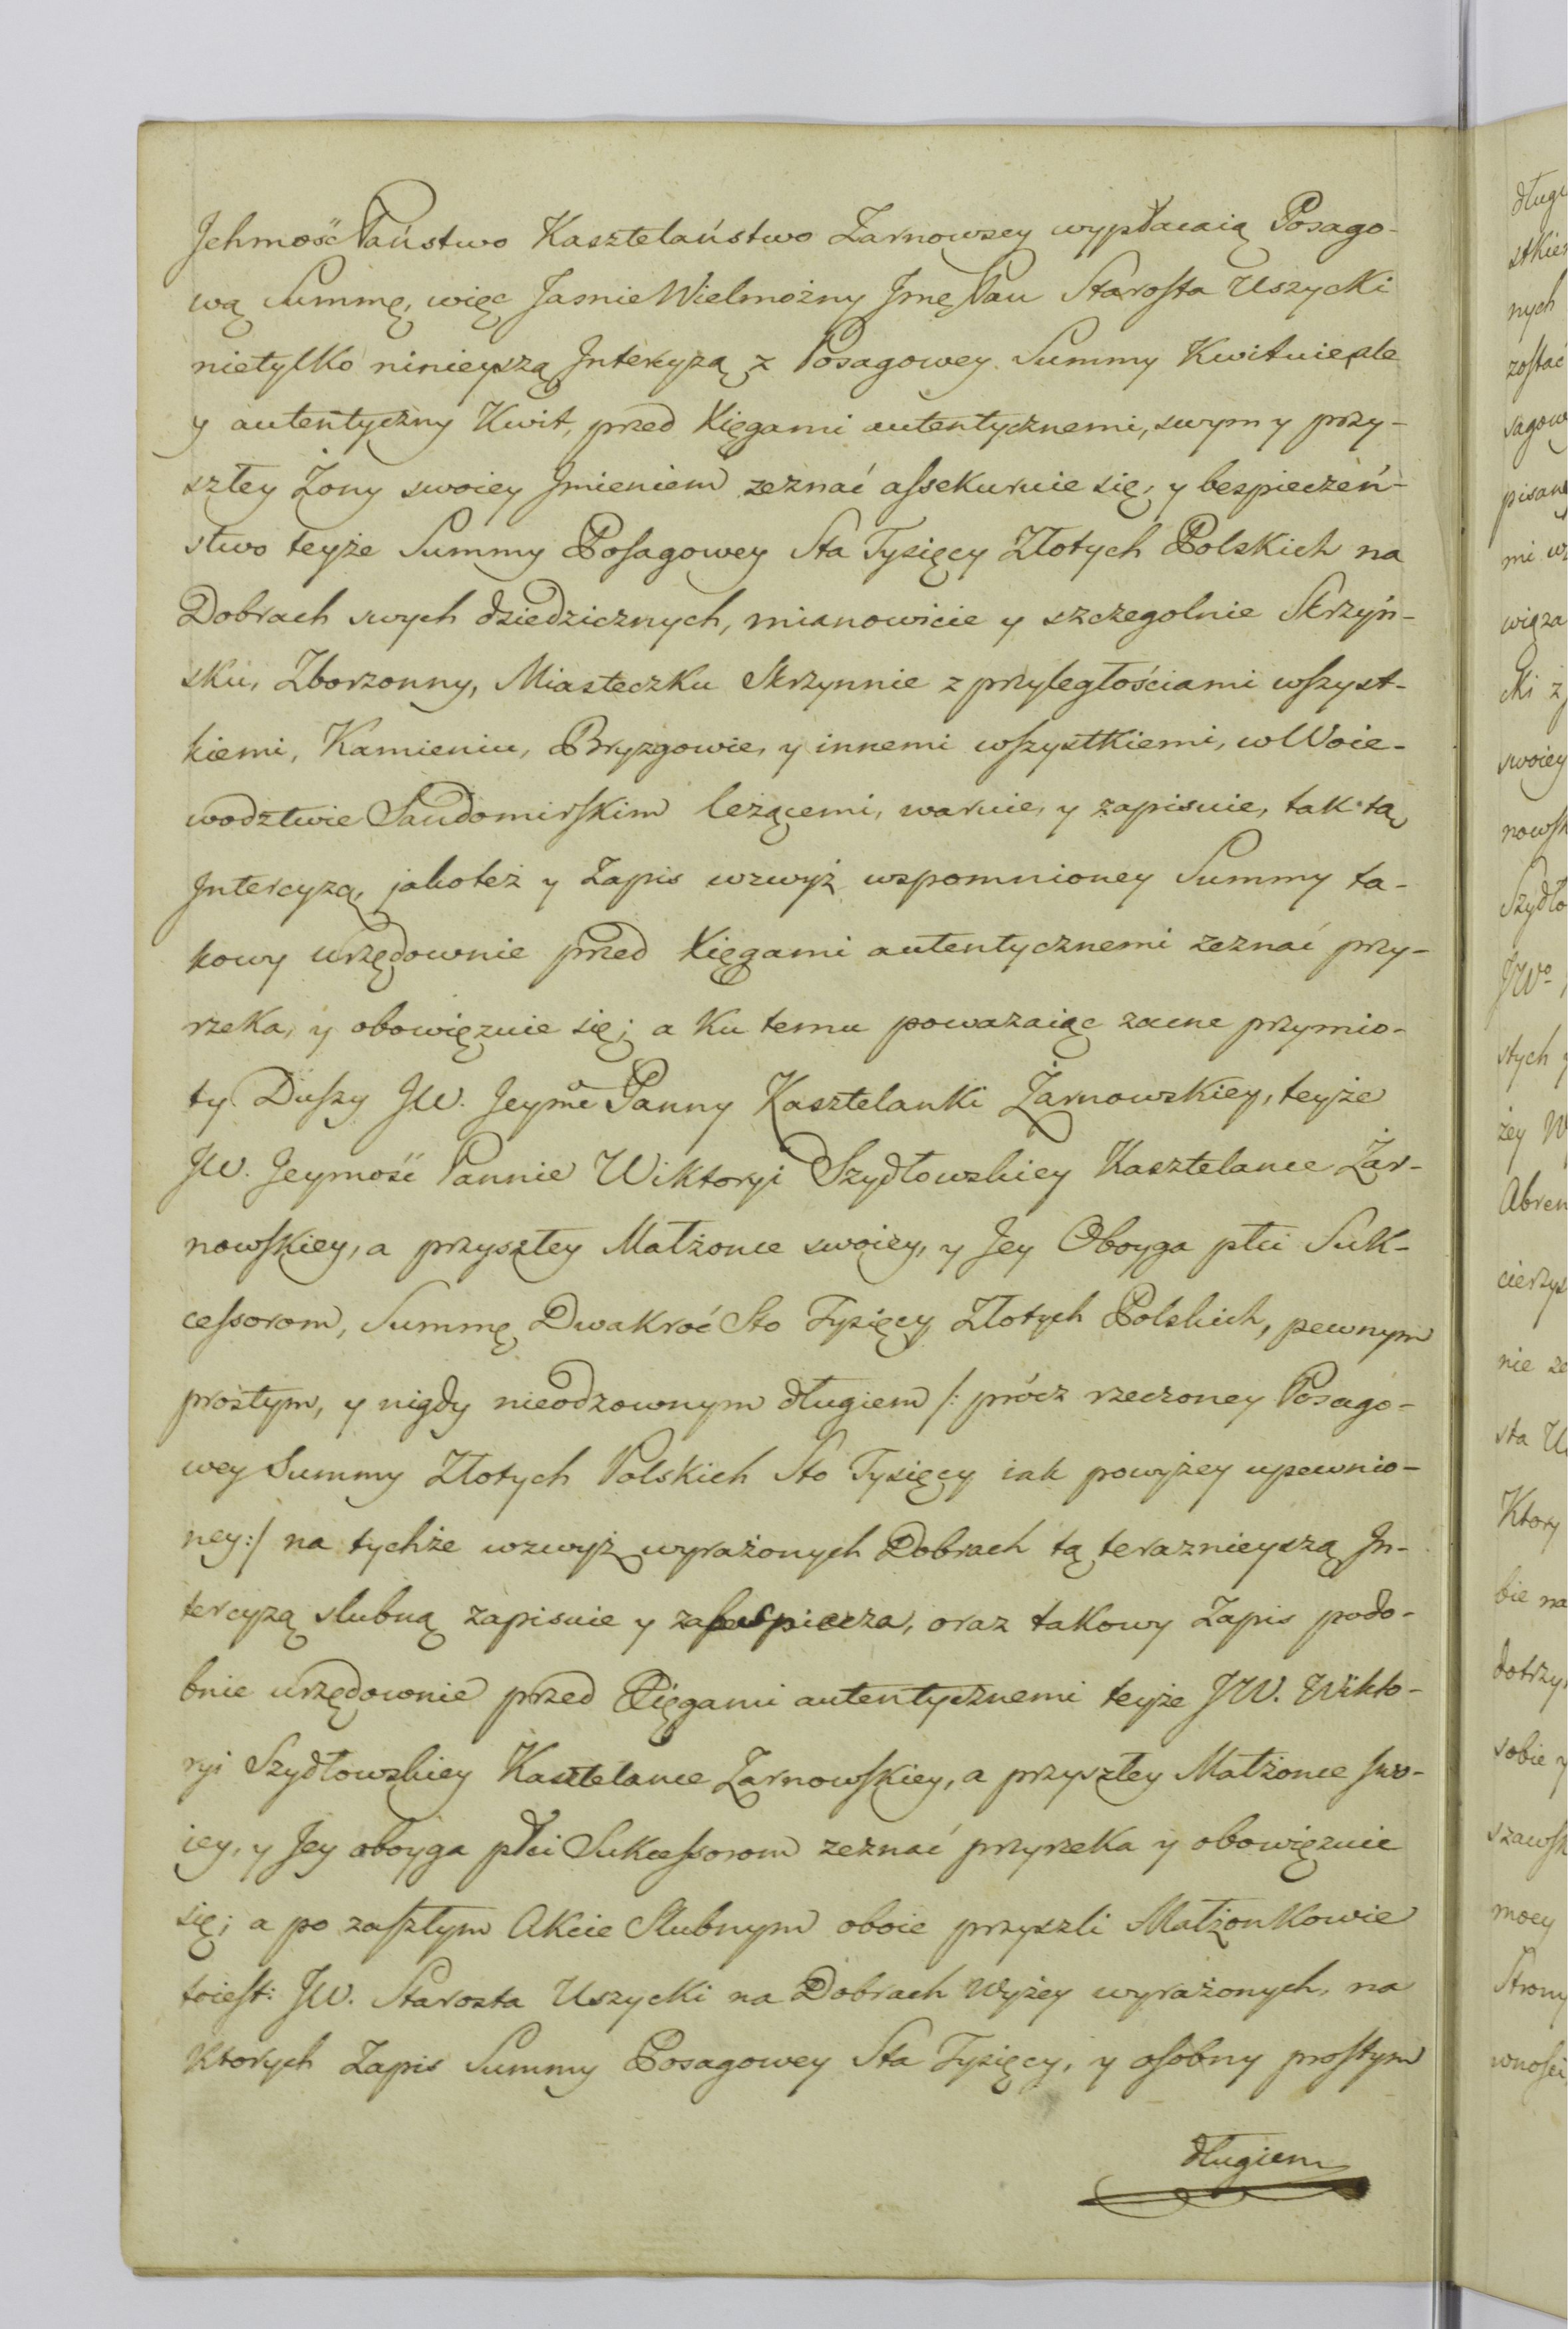 Jchmość Państwo Kasztelaństwo Zarnowscy wypłacaią Posago-
wą Summę, więc Jasnie Wielmożny Jmę Pan Starosta Uszycki
nietylko ninieyszą Jntercyzą z Posagowey Summy Kwituie, ale
y autentyczny Kwit, przed Xięgami autentycznemi, swym y przy-
szłey Żony swoiey Jmieniem zeznać assekuruie się, y bespieczeń-
stwo teyże Summy Posagowey Sta Tysięcy Złotych Polskich na
Dobrach swych dziedzicznych, mianowicie y szczegolnie Skrzyń-
sku, Zborzonny, Miasteczku Skrzynnie z przyległościami wszyst-
kiemi, Kamieniu, Bryzgowie, y innemi wszystkiemi, w Woie-
wodztwie Sandomirskim leżącemi, waruie, y zapisuie, tak tą
Jntercyzą, jakoteż y Zapis wzwyż wspomnioney Summy ta-
kowy urzędownie przed Xięgami autentycznemi zeznać przy-
rzeka, y obowięzuie się; a Ku temu poważaiąc zacne przymio-
ty Duszy JW. Jeymć Panny Kasztelanki Żarnowskiey, teyże
JW. Jeymość Pannie Wiktoryi Szydłowskiey Kasztelance Żar-
nowskiey, a przyszłey Małżonce swoiey, y Jey Oboyga płci Suk-
cessorom, Summę Dwakroć Sto Tysięcy Złotych Polskich, pewnym
prostym, y nigdy nieodzownym długiem /: prócz rzeczoney Posago-
wey Summy Złotych Polskich Sto Tysięcy iak powyżey upewnio-
ney :/ na tychże wzwyż wyrażonych Dobrach tą teraznieyszą Jn-
tercyzą slubną zapisuie y zabespiecza, oraz takowy Zapis podo-
bnie urzędownie przed Xięgami autentycznemi teyże JW. Wikto-
ryi Szydłowskiey Kasztelance Żarnowskiey, a przyszłey Małżonce swo-
iey, y Jey oboyga płci Sukcessorom zeznać przyrzeka y obowięzuie
się; a po zaszłym Akcie Slubnym oboie przyszli Małżonkowie
toiest: JW. Starosta Uszycki na Dobrach Wyżey wyrażonych, na
Ktorych Zapis Summy Posagowey Sta Tysięcy, y osobny prostym
długiem